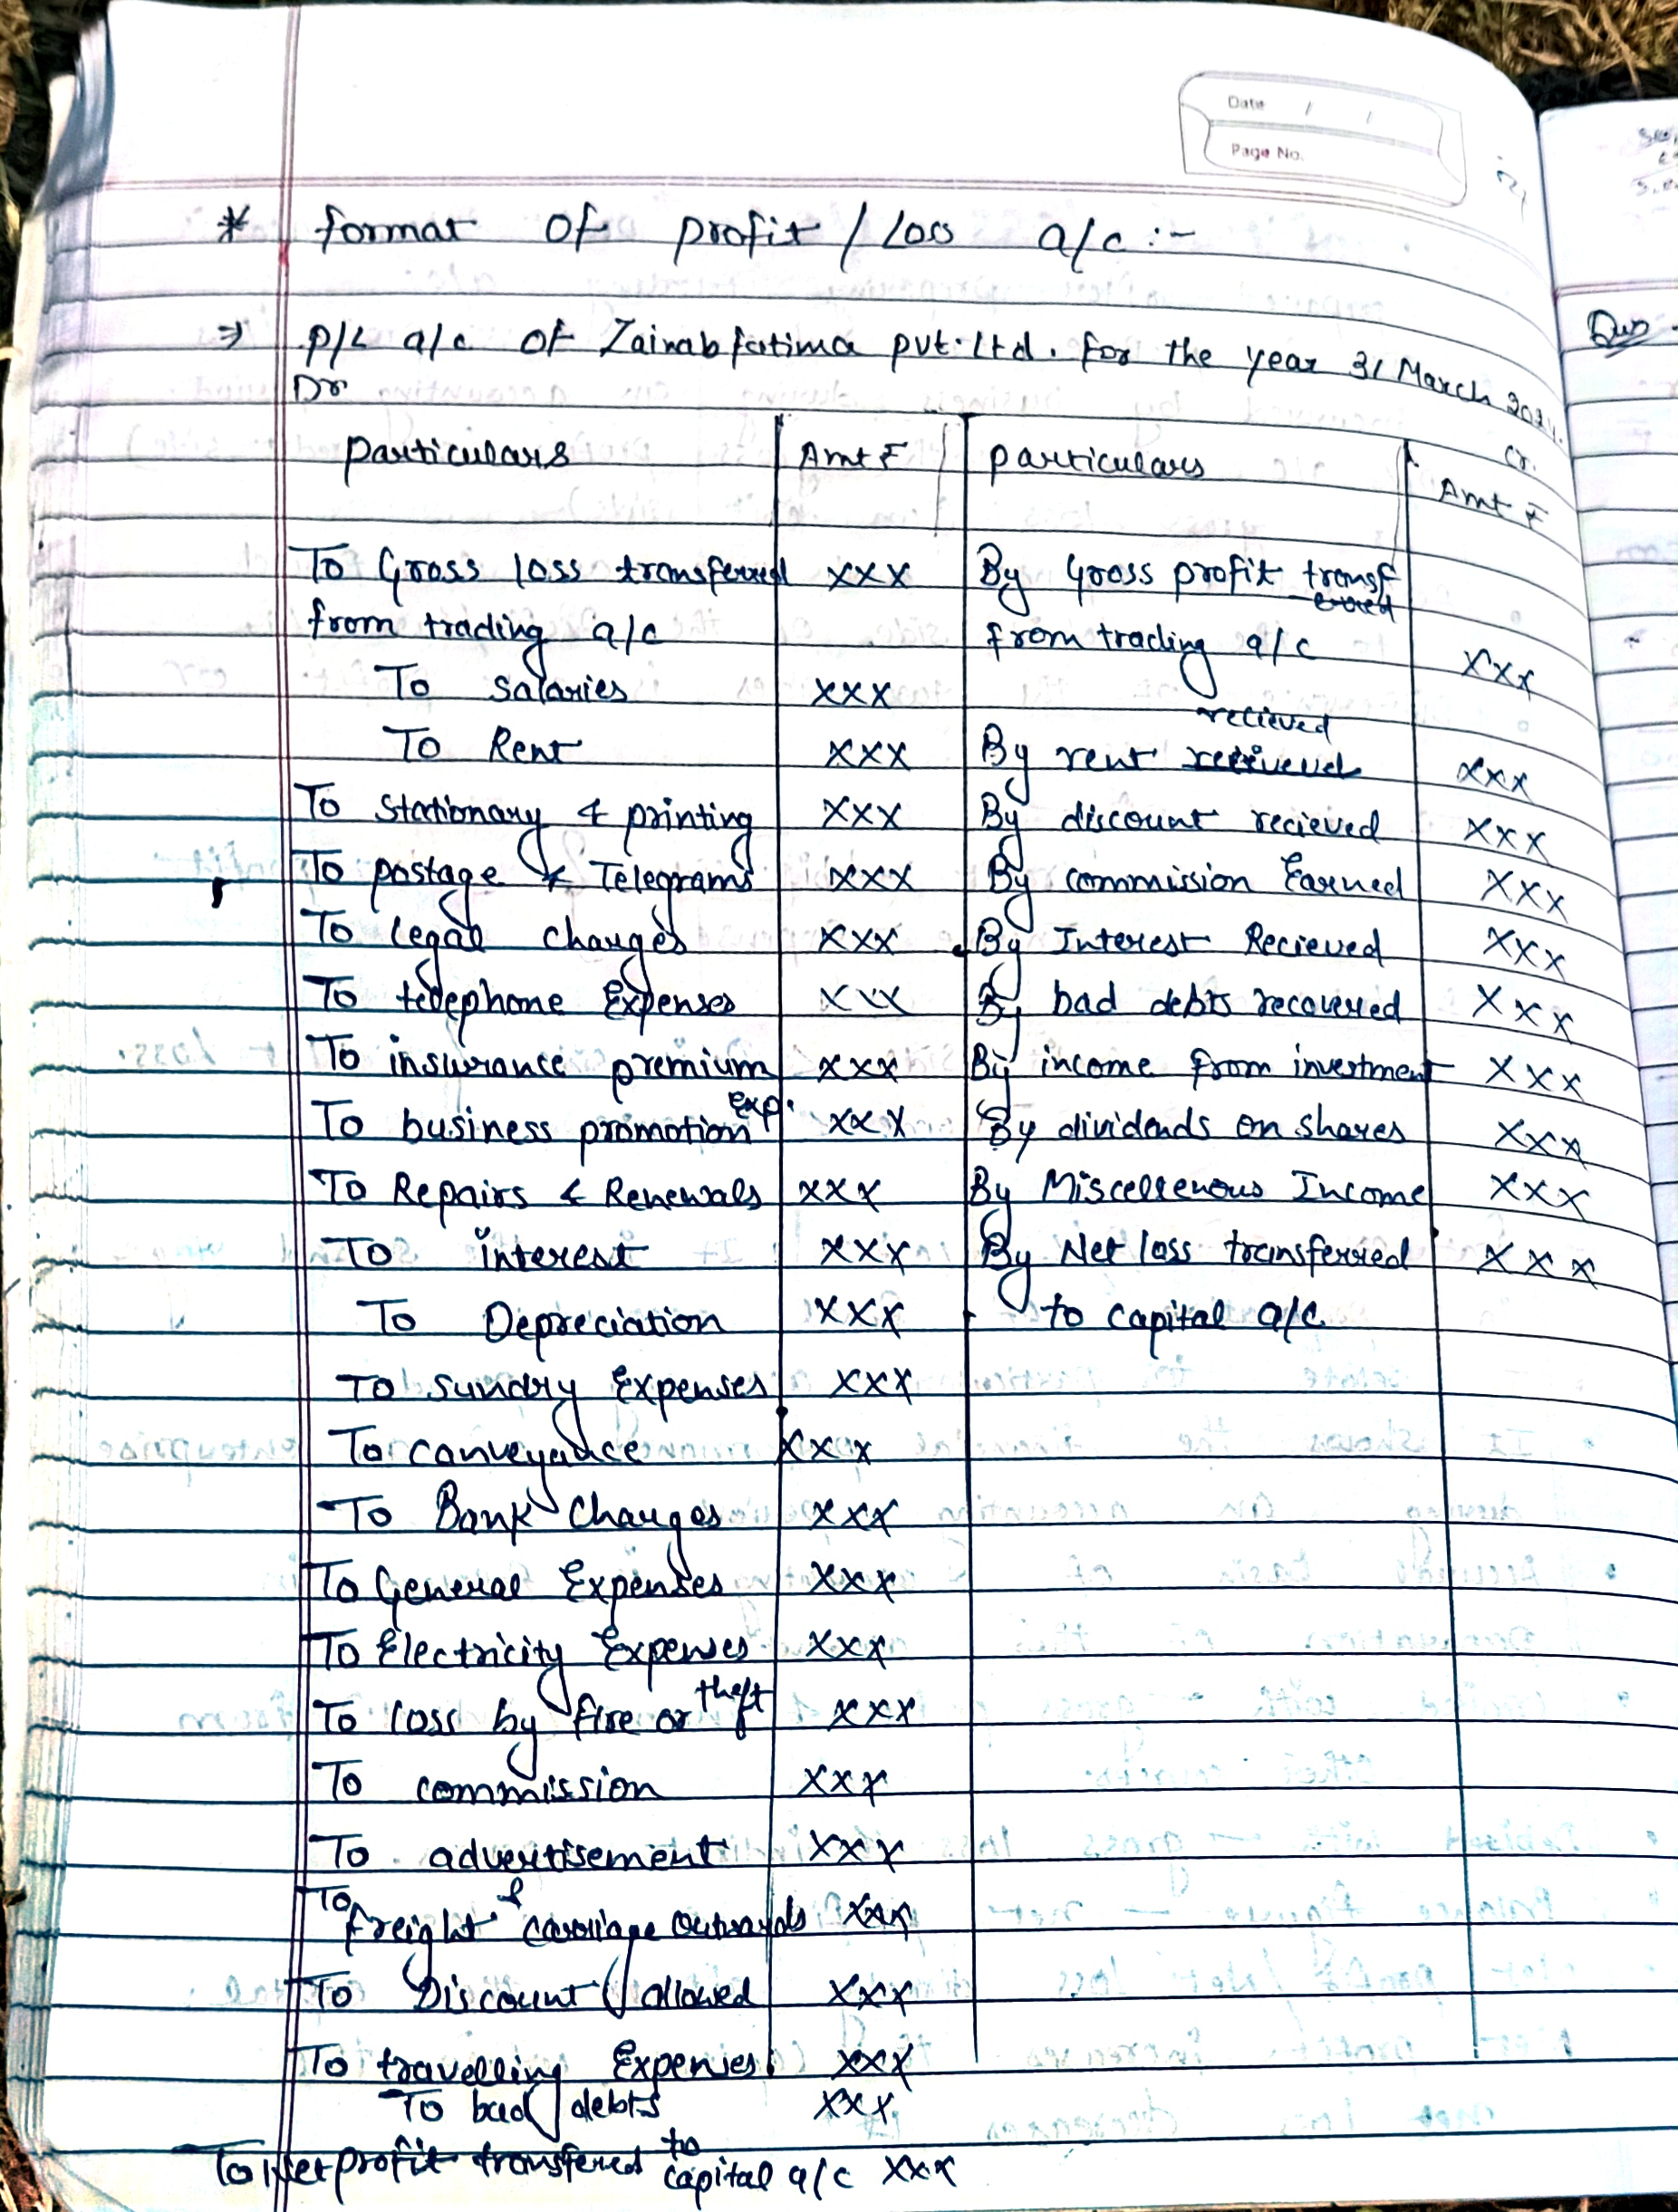 Date / /
Page No.
* format of profit / Loss a/c :-
⇒ P/L a/c of Zainab fatima pvt. ltd. for the year 31 March
Dr
Cr.
Particulars Amt ₹ particulars Amt ₹
To Gross loss transferred xxx By Gross profit transf
erred
from trading a/c from trading a/c xxx
To salaries xxx
recieved
To Rent xxx By rent xxx
To Stationary & printing xxx By discount recieved xxx
To postage & Telegrams xxx By commission Earned xxx
To legal charges xxx By Interest Recieved xxx
To telephone Expenses xxx By bad debts recovered xxx
To insurance premium xxx By income from investment xxx
To business promotion exp. xxx By dividends on shares xxx
To Repairs & Renewals xxx By Miscellenous Income xxx
To interest xxx By Net loss transferred xxx
To Depreciation xxx to capital a/c
To sundry Expenses xxx
To conveyance xxx
To Bank Charges xxx
To General Expenses xxx
To Electricity Expenses xxx
To loss by fire or theft xxx
To commission xxx
To advertisement xxx
To freight & carriage outwards xxx
To Discount allowed xxx
To travelling Expenses xxx
To bad debts xxx
To Net profit transfered to capital a/c xxx
Ques